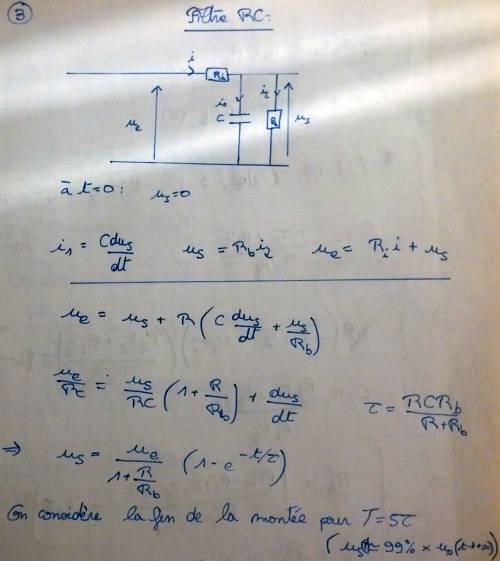 ③
Filtre RC:
i
Ri
i1
i2
ue
C
us
à t=0 : us=0
i1 = C dus/dt us = Rb i2 ue = Ri i + us
ue = us + R (C dus/dt + us/Rb)
ue/RC = us/RC (1 + R/Rb) + dus/dt τ = RCRb/(R+Rb)
⇒ us = ue/(1+R/Rb) (1 - e^(-t/τ))
On considère la fin de la montée pour T=5τ